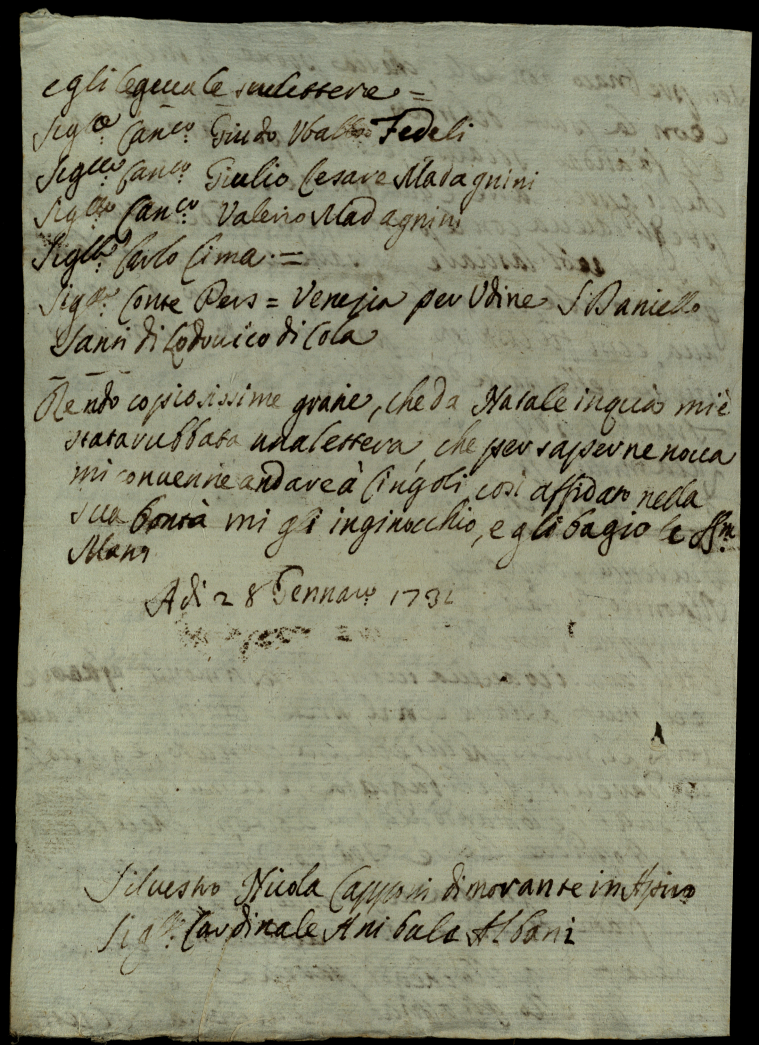 egli legeva le sue lettere =
Sig.re Can.co Guido Ubaldo Fedeli
Sig.re Can.co Giulio Cesare Madagnini
Sig.re Can.co Valerio Madagnini
Sig.re Carlo Cima. =
Sig.re Conte Pers = Venezia per Udine S Daniello
Santi di Lodovico di Cola
Rendo copiosissime grazie, che da Natale inquà mi è
stata rubbata una lettera, che per saperne nova
mi convenne andare à Cingoli, così affidato nella
sua bontà mi gli inginocchio, e gli bagio le
Mani
Adi 28 Gennaro 173
Silvestro Nicola Capponi dimorante in Apiro
Sig.r Cardinale Anibale Albani